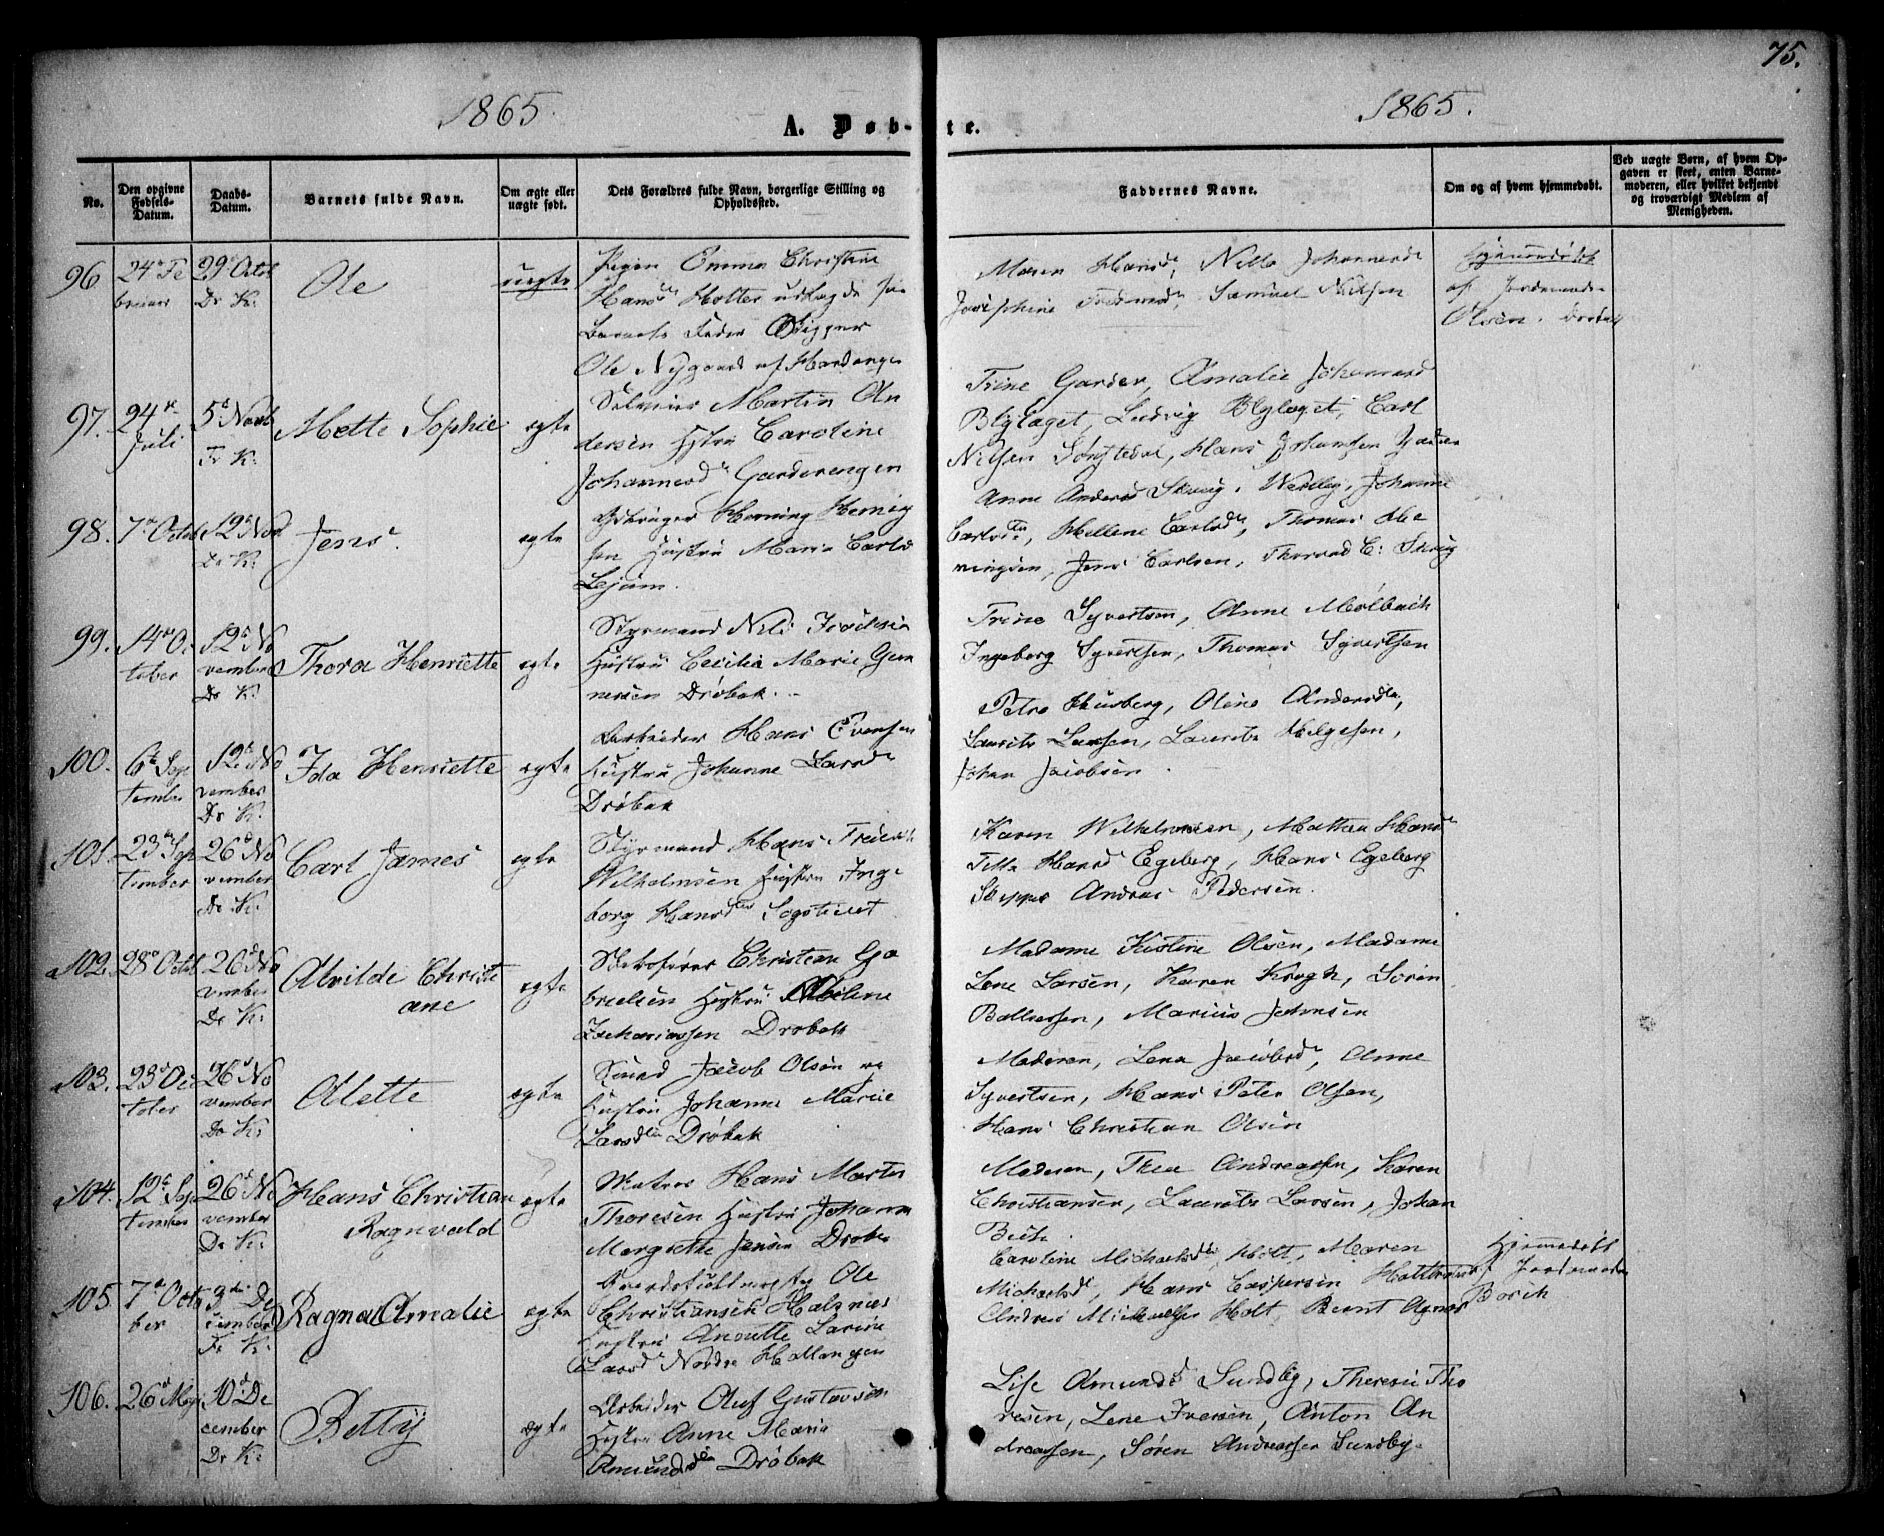 75.
1865.
1865.
A. Døb-te.
No.
Den opgivne Fødsels-Datum.
Daabs-Datum.
Barnets fulde Navn.
Om ægte eller uægte født.
Dets Forældres fulde Navn, borgerlige Stilling og Opholdssted.
Faddernes Navne.
Om og af hvem hjemmedøbt.
Ved uægte Børn, af hvem Opgaven er skeet, enten Barnemoderen, eller hvilket bekjendt og troværdigt Medlem af Menigheden.
96
24de Februar
29de Octob
Dr K:
Ole
uægte
Pigen Emma Christine
Hansd Holter udlagde for
Barnets Fader Skipper
Ole Nygaard af Hardanger
Maren Hansd,
Josephine, Samuel Nilsen
Hjemmedøbt
af Jordemoder
Olsen.
97.
24de Juli
5te Novb
Fr K:
Mette Sophie
ægte
Martin Andersen Hustru Caroline
Johannesd Garderengen
Trine Garder, Amalie Johannesd
Blylaget, Ludvig Blylaget, Carl
Nilsen, Hans Johansen
98.
7de Octob
12 Nov
Dr K:
Jens.
ægte
Henning Hennigsen Hustru Maria Carlsd
Anne Andersd Skovig, Johanne
Carlsd, Hellene Carlsd, Thomas Henningsen, Jens Carlsen, Thorvald C: Skovig
99.
14 October
12te November
Dr K.
Thora Henriette
ægte
Styrmand Nils
Hustru Cecilia Marie Gunnersen Drøbak.
Trine Syvertsen, Anne Mølbach
Ingeborg Syvertsen, Thomas Syvertsen
100.
6te September
12te November
Dr K:
Ida Henriette
ægte
Arbeider Hans Evensen
Hustru Johanne Larsd
Drøbak
Petra Husberg, Oline Andersd,
Laurits Larsen, Laurits Helgesen,
Johan Jacobsen.
101.
23de September
26de November
Dr K:
Carl James
ægte
Styrmand Hans
Wilhelmsen Hustru Ingeborg Hansd
Karen Wilhelmsen, Mathea Hansd
Hansd Egeberg, Hans Egeberg
Skipper Andreas Pedersen.
102.
28de Octob
26de November
Dr K:
Alvilde Christiane
ægte
Christian Gabrielsen Hustru
Zachariassen Drøbak
Madame Kistine Olsen, Madame
Lene Larsen, Karen Krogh, Søren
Marius Jahnsen
103.
23de October
26de November
Dr K:
Alette
ægte
Jacob Olsen og
Hustru Johanne Marie
Larsd Drøbak
Moderen, Lena Jacobsd, Anne
Syvertsen, Hans Peter Olsen,
Hans Christian Olsen
104.
12te September
26de November
Dr K:
Hans Christian
Ragnvald
ægte
Matros Hans Martin
Thoresen Hustru Johanne
Margrethe Jensen Drøbak
Moderen, Thea Andreassen, Karen
Christiansen, Laurits Larsen, Johan
105.
7de October
3die December
Fr K:
Ragna Amalie
ægte
Ole
Christiansen Halsnæs
Hustru Anette Larine
Larsd Nordre Hallangen
Caroline Michaelsd Holt, Maren
Michaelsd, Hans Caspersen
Andreas Michaelsen Holt, Bernt Agnar
Hjemmedøbt
af Jordemoder
106.
26de Mai
10de December
Dr K:
Betty
ægte
Arbeider Oluf Gustavsen
Hustru Anne Maria
Amundsd Drøbak
Lise Amundsd Sundby, Theresia Thoresen, Lene Iversen, Anton Andreassen, Søren Andreassen Sundby